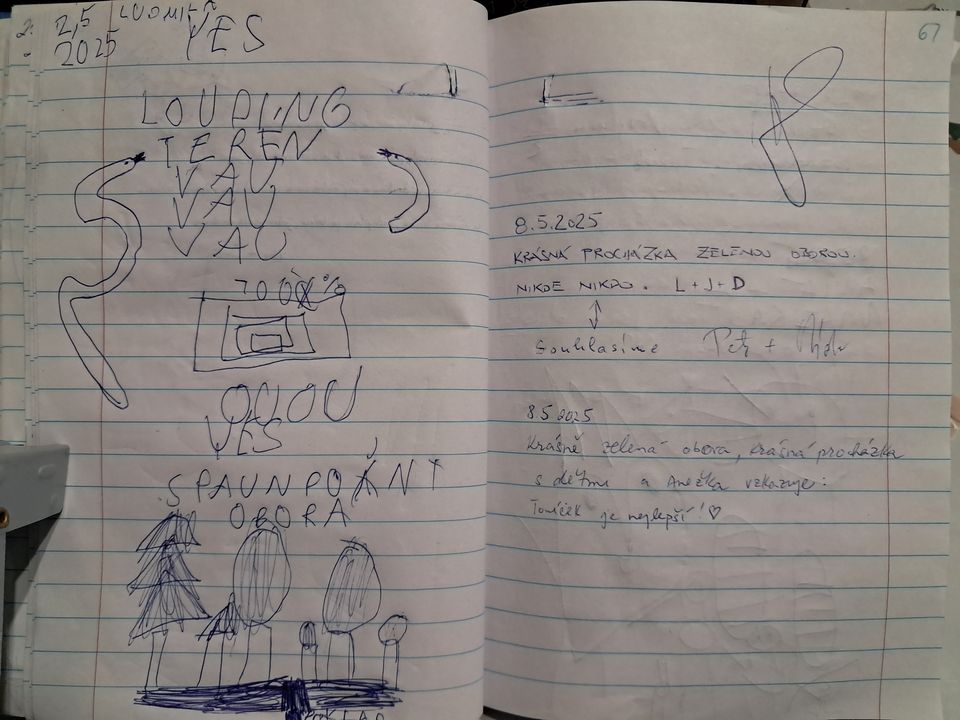 2,5 LUDMILA
2025
YES
LOUDING
TEREN
VAU
VAU
VAU
700%
YES
SPAUNPOJNT
OBORA
POKLAD
67
8.5.2025
KRÁSNÁ PROCHÁZKA ZELENOU OBOROU.
NIKDE NIKDO. L+J+D
Souhlasíme Petr +
8.5.2025
Krásně zelená obora, krásná procházka
s dětmi a Anežka vzkazuje:
Toníček je nejlepší! ♡